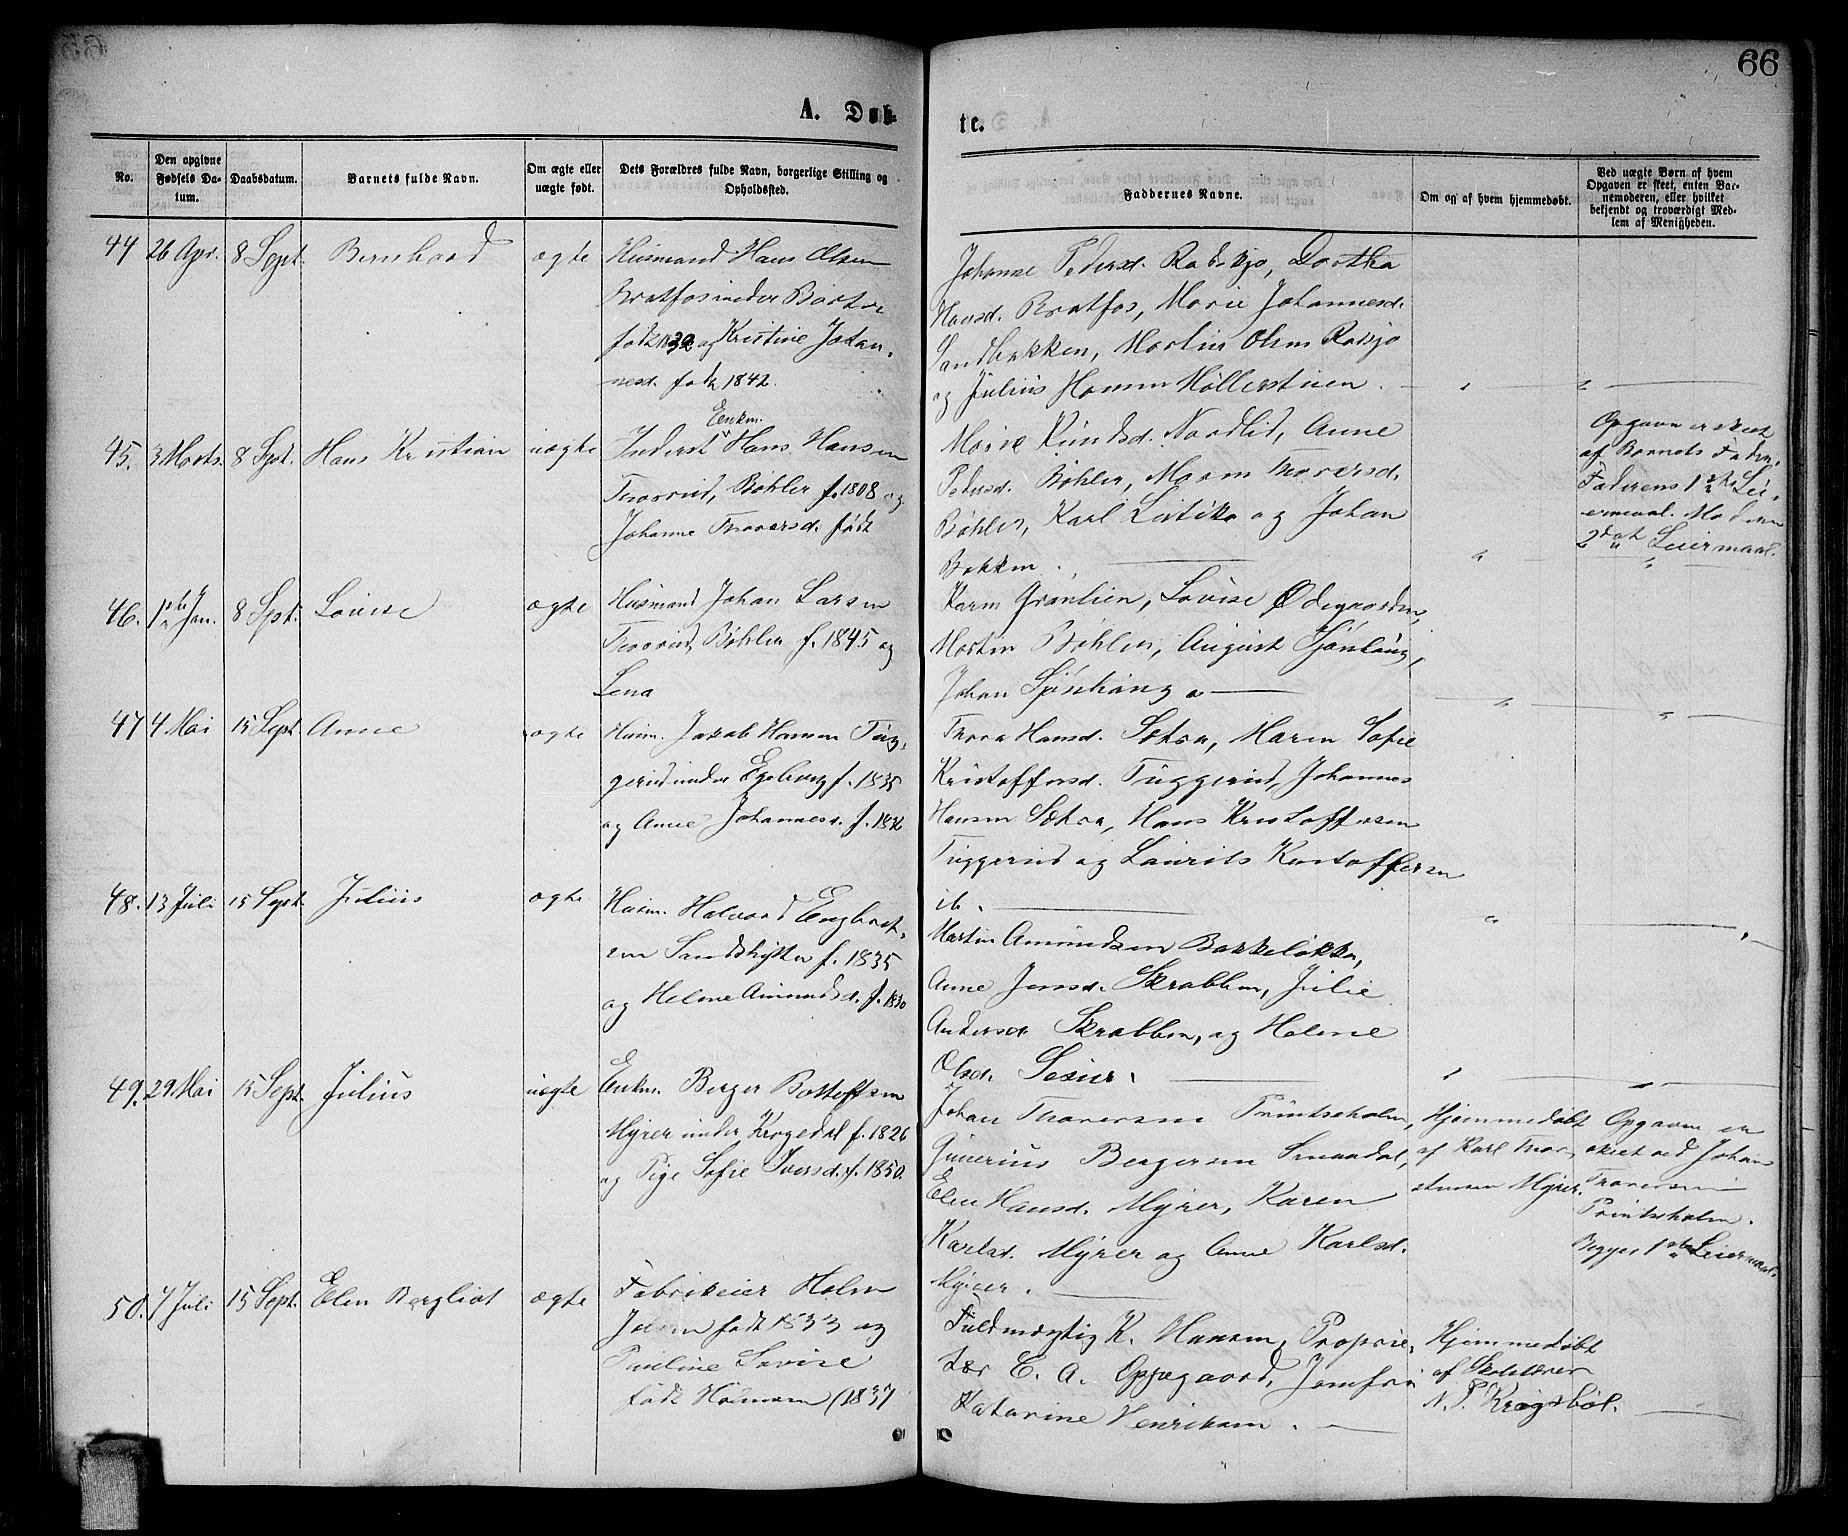 66
A. Døb-
te.
No.
Den opgivne Fødsels Datum.
Daabsdatum.
Barnets fulde Navn.
Om ægte eller uægte født.
Dets Forældres fulde Navn, borgerlige Stilling og Opholdssted.
Faddernes Navne.
Om og af hvem hjemmedøbt.
Ved uægte Børn af hvem Opgaven er skeet, enten Barnemoderen, eller hvilket bekjendt og troværdigt Medlem af Menigheden.
44 26 Apr. 8 Sept. Bernhard ægte Husmand Hans Olsen
Bratfos under
født 1832 og Kristine Johan-
nesd. født 1842.
Johanne Pedersd. Rodskjø, Dorthea
Hansd. Bratfos, Marie Johannesd.
Sandbakken, Martin Olsen
og Julius Hansen Møllerstuen
45. 3 Marts. 8 Spt. Hans Kristian uægte Inderst Enkm. Hans Hansen
Thorrud, Bøhler f. 1808 og
Johanne Thorersd. født
Marie Knudsd. Nordlid, Anne
Pedersd. Bøhler, Maren Thorersd.
Bøhler, Karl og Johan
Bakken.
Opgaven er skeet
af Barnets Fader.
Faderens 1ste Lei-
ermaal. Moderen
2det Leiermaal.
46. 1ste Jan. 8 Spt. Lovise ægte Husmand Johan Larsen
Thorrud, Bøhler f. 1845 og
Lena
Karen Grønlien, Lovise Ødegaarden,
Martin Bøhler, August
Johan
47 4 Mai 15 Sept. Anne ægte Husm. Jakob Hansen Tug-
gerud under Egeberg f. 1835
og Anne Johannesd. f. 1836
Thora Hansd. Sætra, Maren Sofie
Kristoffersd. Tuggerud, Johannes
Hansen Sætra, Hans Kristoffersen
Tuggerud og Laurits Kristoffersen
ib.
48. 13 Juli 15 Sept. Julius ægte Husm. Halvard Engbret-
sen Sandshytta f. 1835
og Helene Amundsd. f. 1830
Martin Amundsen Bakkeløkka,
Anne Jensd. Skrabben, Julie
Andersd. Skrabben, og Helene
Olsd.
49. 29 Mai 15 Sept. Julius uægte Enkm. Berger Bottolfsen
Myrer under Krogedal f. 1826
og Pige Sofie Iversd. f. 1850.
Johan Thoresen Printseholm,
Gunerius Bergersen Smaadal,
Elen Hansd. Myrer, Karen
Karlsd. Myrer og Anne Karlsd.
Myrer.
Hjemmedøbt
af Karl Thor-
stensen Myrer.
Opgaven er
skeet ved Johan
Thoresen
Printseholm.
Begges 1ste Leiermaal.
50. 7 Juli 15 Sept. Elen Bergliot ægte Fabrikeier Halm
Jensen født 1833 og
Pauline Lovise
født Hansen (1837
Fuldmægtig K. Hansen, Proprie-
tær C. A. Oppegaard, Jomfru
Katarine Henriksen.
Hjemmedøbt
af Skolelærer
N. P. Krogsbøl.